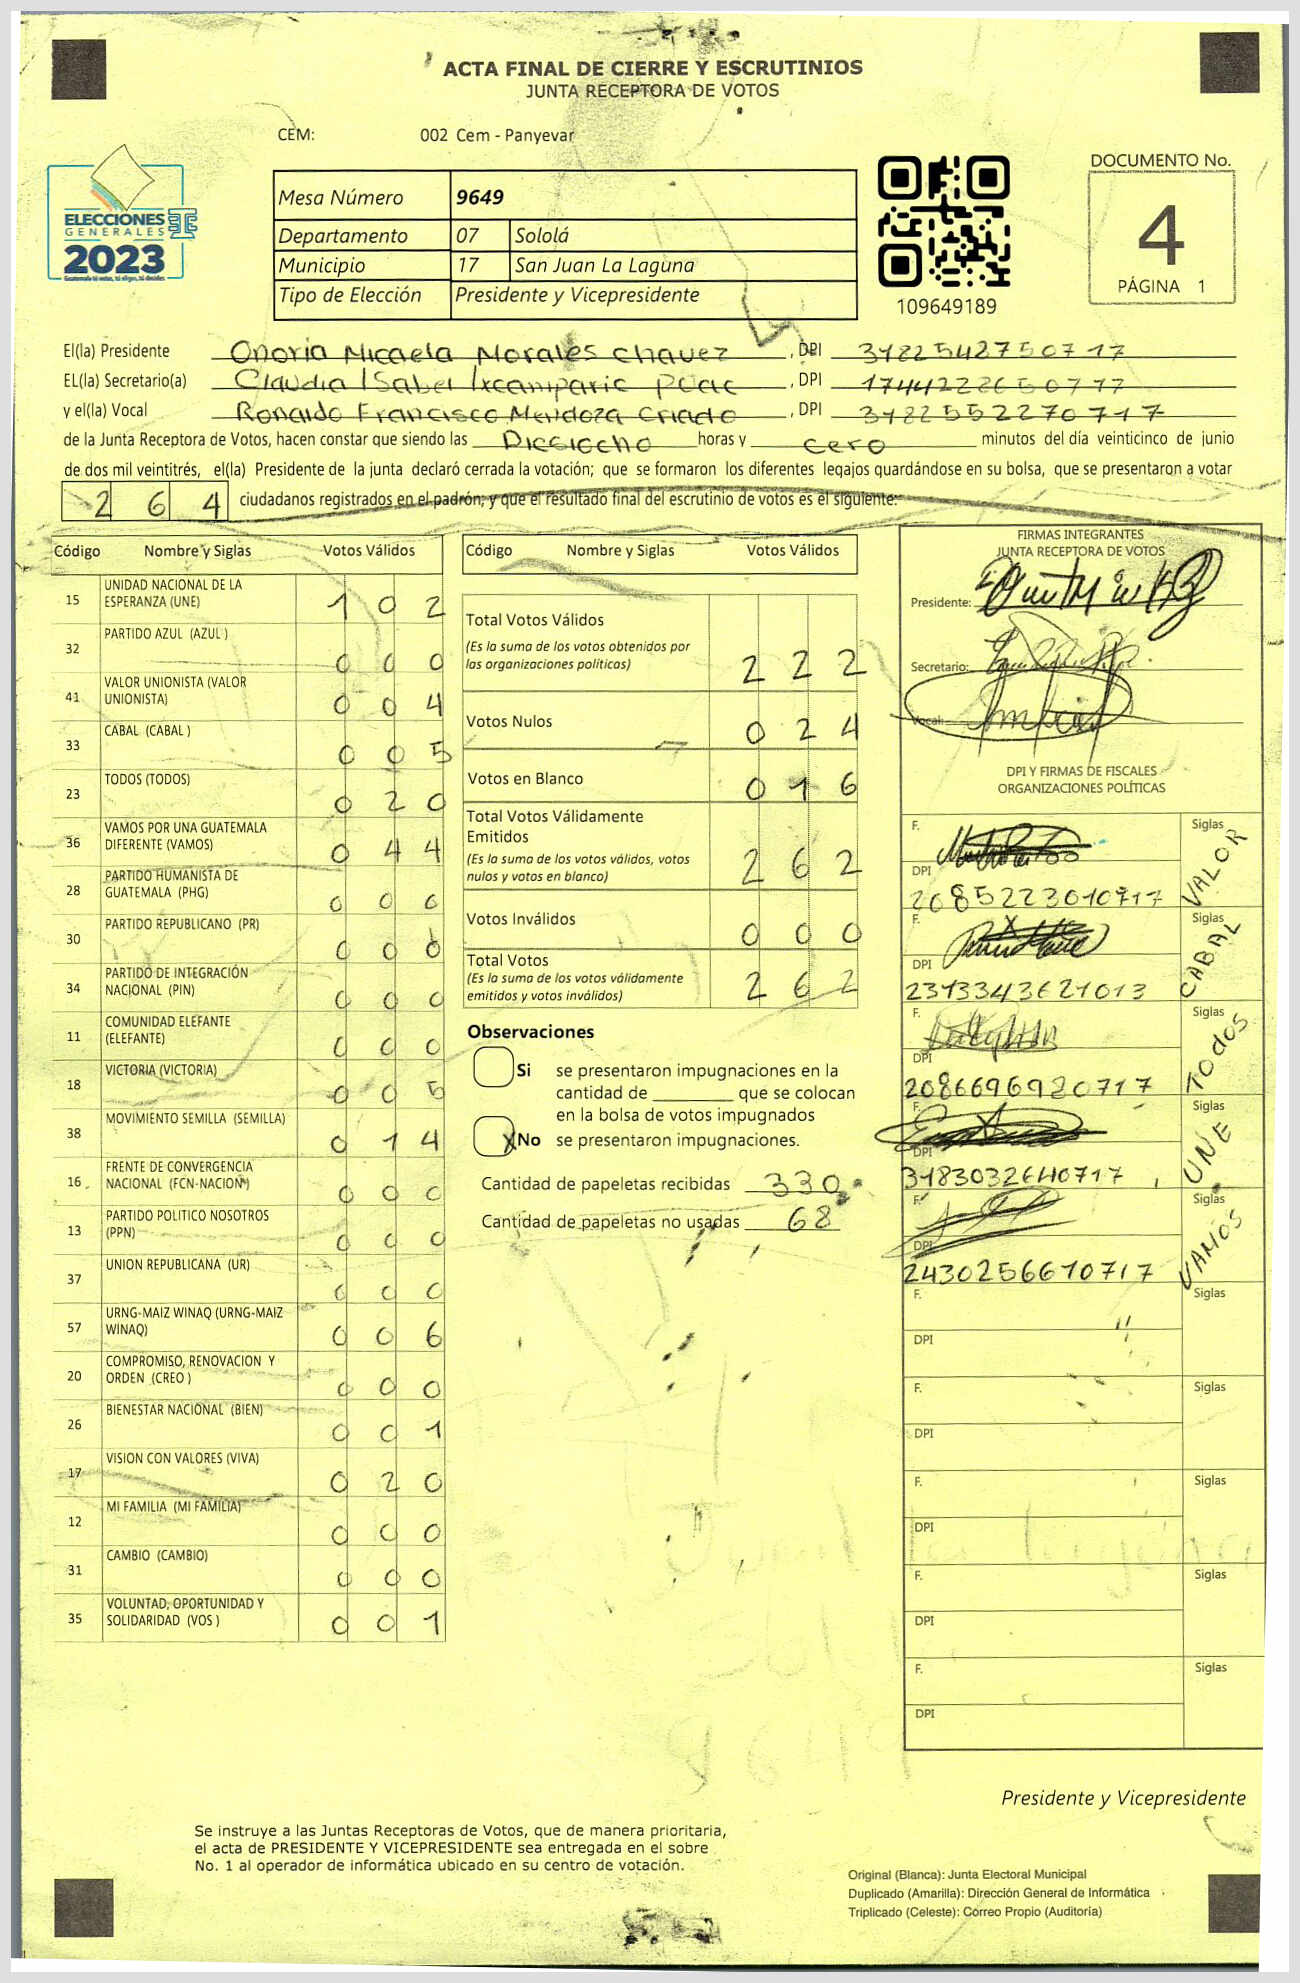 ACTA FINAL DE CIERRE Y ESCRUTINIOS
JUNTA RECEPTORA DE VOTOS
CEM: 002 Cem - Panyevar
ELECCIONES
GENERALES
2023
Guatemala tú votas, tú eliges, tú decides
Mesa Número 9649
Departamento 07 Sololá
Municipio 17 San Juan La Laguna
Tipo de Elección Presidente y Vicepresidente
109649189
DOCUMENTO No.
4
PÁGINA 1
El(la) Presidente Onoria Micaela Morales Chavez , DPI 3182542750717
EL(la) Secretario(a) Claudia Isabel Ixcamparic , DPI
y el(la) Vocal Ronaldo Francisco Mendoza Criado , DPI 3182552270717
de la Junta Receptora de Votos, hacen constar que siendo las Diesiocho horas y cero minutos del día veinticinco de junio
de dos mil veintitrés, el(la) Presidente de la junta declaró cerrada la votación; que se formaron los diferentes legajos quardándose en su bolsa, que se presentaron a votar
264 ciudadanos registrados en el padrón; y que el resultado final del escrutinio de votos es el siguiente:
Código Nombre y Siglas Votos Válidos
15 UNIDAD NACIONAL DE LA ESPERANZA (UNE) 102
32 PARTIDO AZUL (AZUL ) 000
41 VALOR UNIONISTA (VALOR UNIONISTA) 004
33 CABAL (CABAL ) 005
23 TODOS (TODOS) 020
36 VAMOS POR UNA GUATEMALA DIFERENTE (VAMOS) 044
28 PARTIDO HUMANISTA DE GUATEMALA (PHG) 000
30 PARTIDO REPUBLICANO (PR) 000
34 PARTIDO DE INTEGRACIÓN NACIONAL (PIN) 000
11 COMUNIDAD ELEFANTE (ELEFANTE) 000
18 VICTORIA (VICTORIA) 005
38 MOVIMIENTO SEMILLA (SEMILLA) 014
16 FRENTE DE CONVERGENCIA NACIONAL (FCN-NACION) 000
13 PARTIDO POLITICO NOSOTROS (PPN) 000
37 UNION REPUBLICANA (UR) 000
57 URNG-MAIZ WINAQ (URNG-MAIZ WINAQ) 006
20 COMPROMISO, RENOVACION Y ORDEN (CREO ) 000
26 BIENESTAR NACIONAL (BIEN) 001
17 VISION CON VALORES (VIVA) 020
12 MI FAMILIA (MI FAMILIA) 000
31 CAMBIO (CAMBIO) 000
35 VOLUNTAD, OPORTUNIDAD Y SOLIDARIDAD (VOS ) 001
Código Nombre y Siglas Votos Válidos
Total Votos Válidos
(Es la suma de los votos obtenidos por
las organizaciones políticas) 222
Votos Nulos 024
Votos en Blanco 016
Total Votos Válidamente
Emitidos
(Es la suma de los votos válidos, votos
nulos y votos en blanco) 262
Votos Inválidos 000
Total Votos
(Es la suma de los votos válidamente
emitidos y votos inválidos) 262
Observaciones
Si se presentaron impugnaciones en la
cantidad de ________ que se colocan
en la bolsa de votos impugnados
X No se presentaron impugnaciones.
Cantidad de papeletas recibidas 330
Cantidad de papeletas no usadas 68
FIRMAS INTEGRANTES
JUNTA RECEPTORA DE VOTOS
Presidente:
Secretario:
Vocal:
DPI Y FIRMAS DE FISCALES
ORGANIZACIONES POLÍTICAS
F. Siglas VALOR
DPI 2085223010717
F. Siglas CABAL
DPI 2313343621013
F. Siglas TODOS
DPI 2086696920717
F. Siglas UNE
DPI 3183032640717
F. Siglas VAMOS
DPI 2430256610717
F. Siglas
DPI
F. Siglas
DPI
F. Siglas
DPI
F. Siglas
DPI
F. Siglas
DPI
Presidente y Vicepresidente
Se instruye a las Juntas Receptoras de Votos, que de manera prioritaria,
el acta de PRESIDENTE Y VICEPRESIDENTE sea entregada en el sobre
No. 1 al operador de informática ubicado en su centro de votación.
Original (Blanca): Junta Electoral Municipal
Duplicado (Amarilla): Dirección General de Informática
Triplicado (Celeste): Correo Propio (Auditoría)